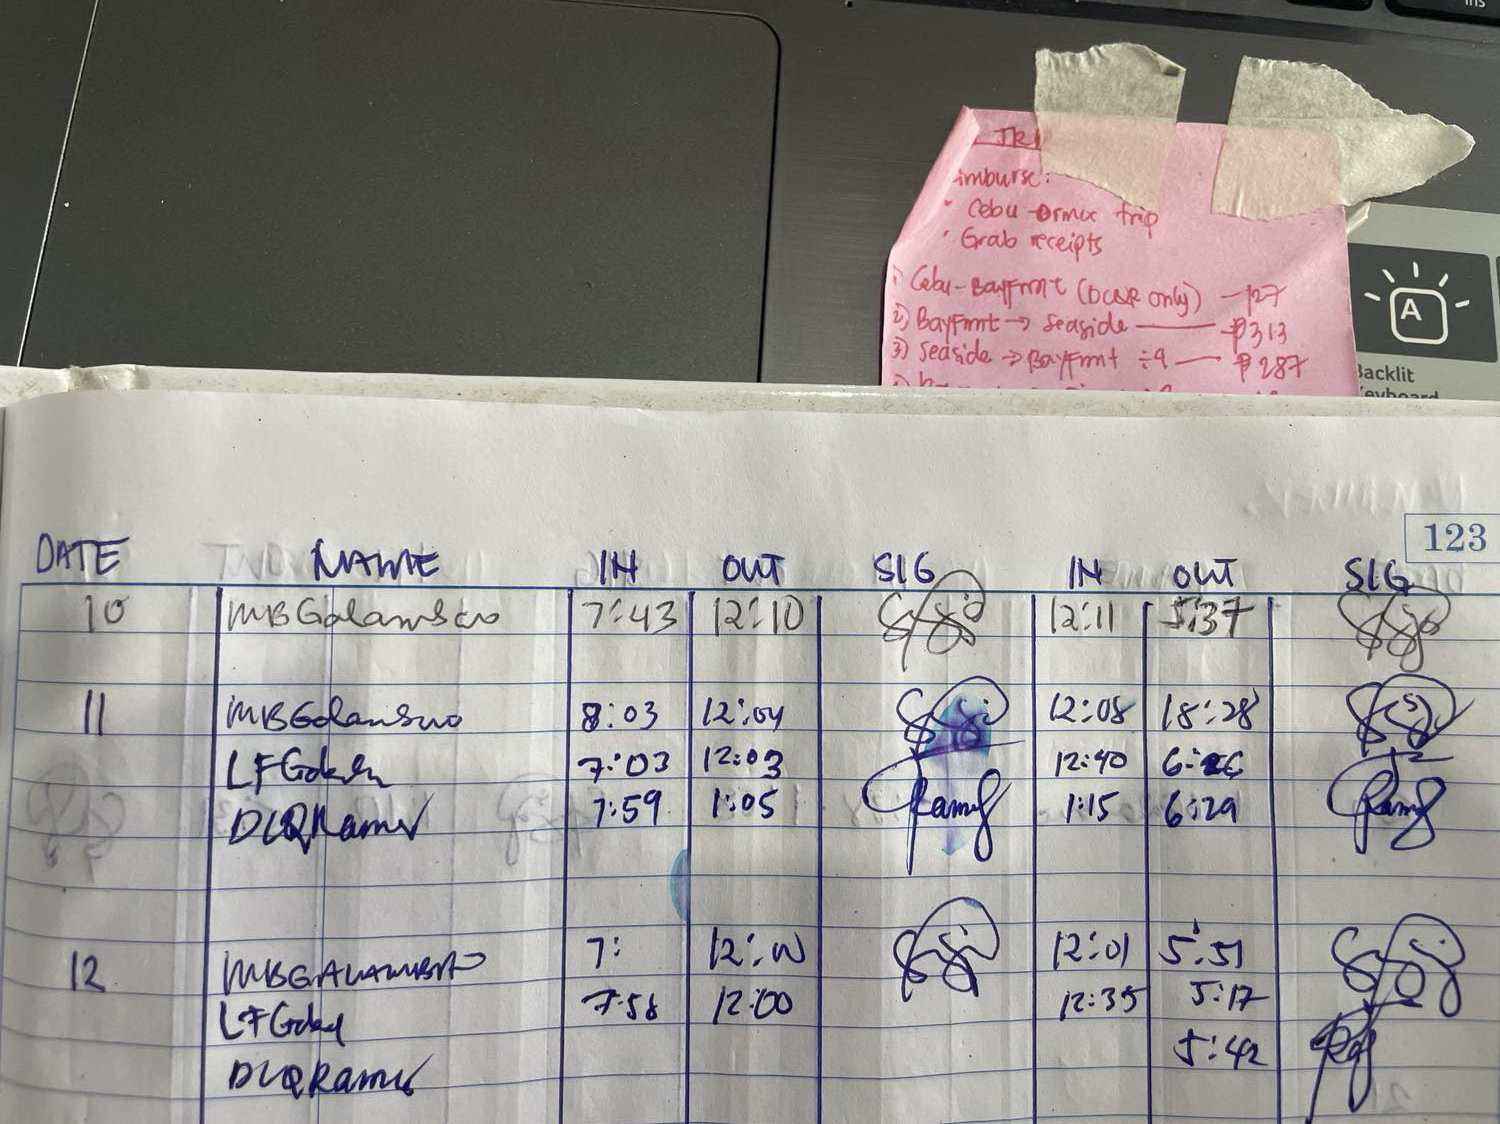 ins
imburse:
• Cebu - Ormoc trip
• Grab receipts
1) Cebu - Bayfront (DCQR only) — 127
2) Bayfront → Seaside — ₱313
3) Seaside → Bayfront ÷ 9 — ₱287
A
Backlit
123
DATE NAME IN OUT SIG IN OUT SIG
10 7:43 12:10 12:11 5:37
11 8:03 12:04 12:08 18:28
7:03 12:03 12:40
DLQRamos 7:59 1:05 1:15 6:29
12 7: 12:00 12:01 5:51
7:58 12:00 12:35 5:17
DLQRamos 5:42